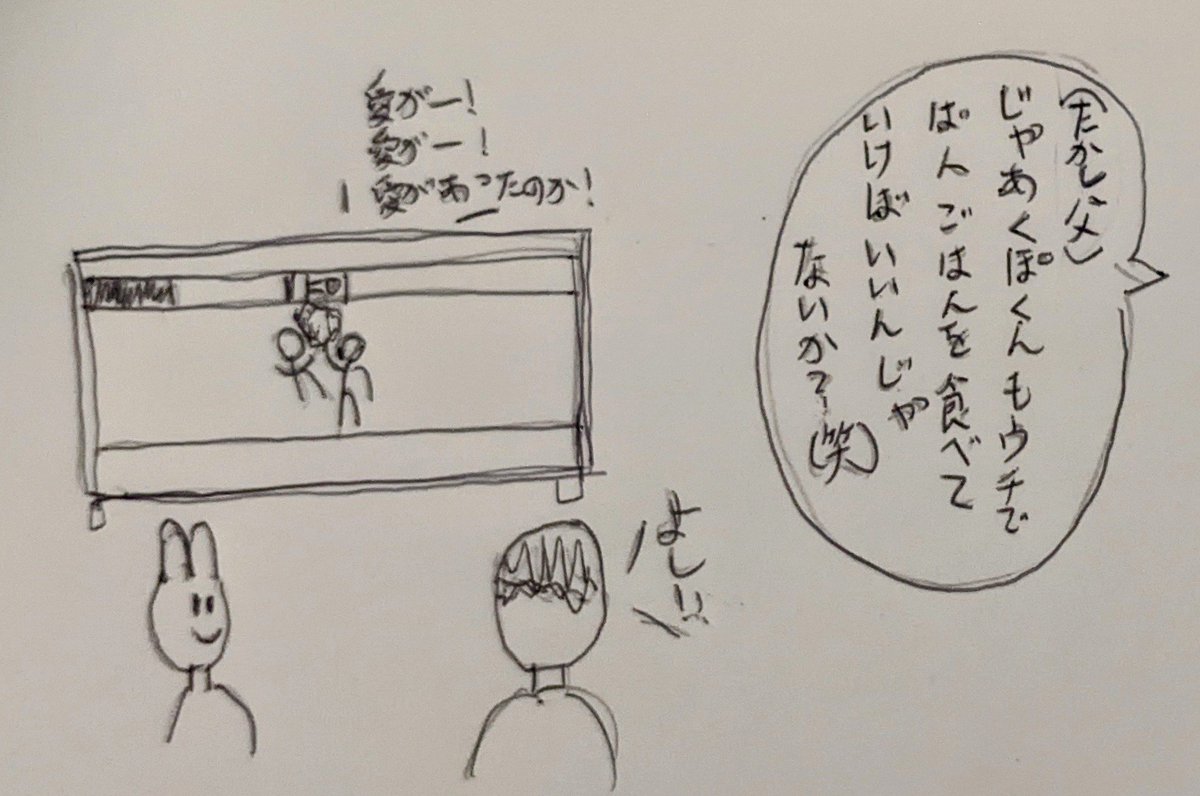 (たかし父)
じゃあくぽくんもウチで
ばんごはんを食べて
いけばいいんじゃ
ないか?(笑)
愛がー!
愛がー!
愛があったのか!
よし!!